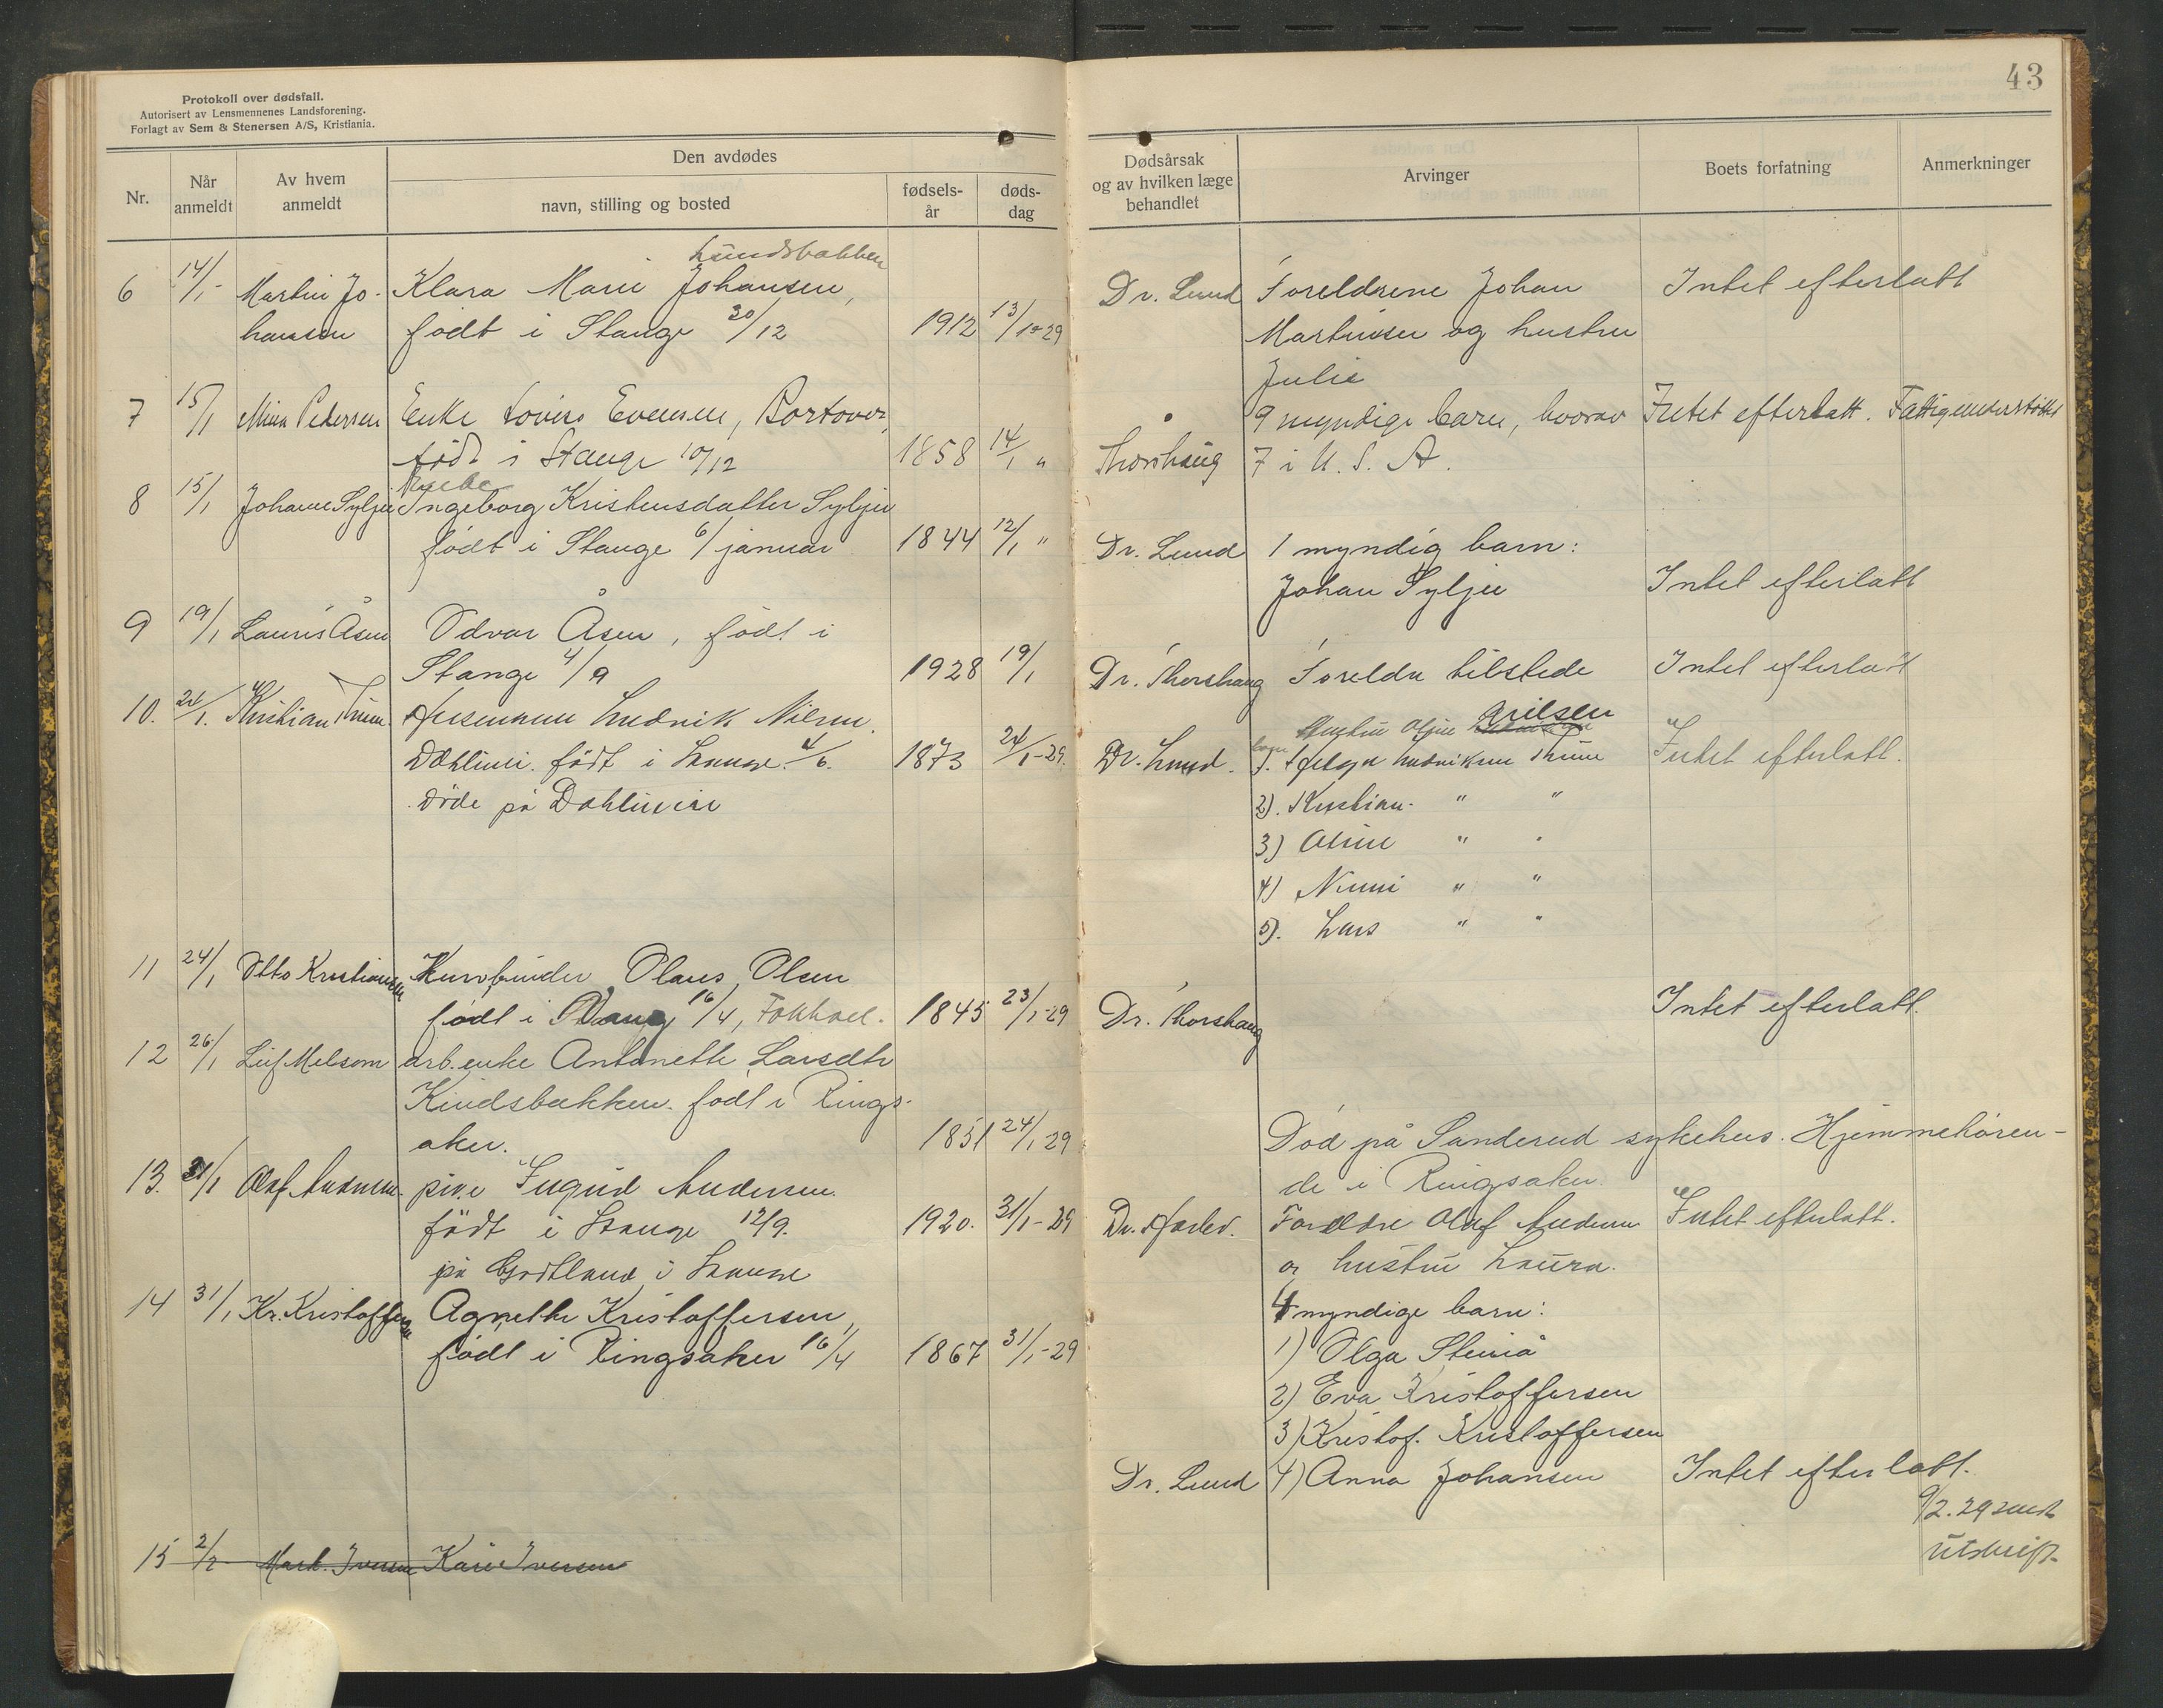 Protokoll over dødsfall.
Autorisert av Lensmennenes Landsforening.
Forlagt av Sem & Stenersen A/S, Kristiania.
Nr.
Når anmeldt
Av hvem anmeldt
Den avdødes
navn, stilling og bosted
fødsels-år
døds-dag
6 14/1- Martin Jo- Klara Marie Johansen,
hansen født i Stange 30/12 1912 13/1-29
7 15/1 Mina Pedersen Enke Lovise Evensen,
født i Stange 10/12 1858 14/1 "
8 15/1 Johanne Sylju Ingeborg Kristensdatter Sylju
født i Stange 6/ januar 1844 12/1 "
9 19/1 Lauris Åsen Odvar Åsen, født i
Stange 4/9 1928 19/1
10. Kristian Husmann Ludvik Nilsen
født i Stange 4/6. 1873 24/1-29.
døde på
11 24/1 Otto Kristiansen Kurvbinder Olaus Olsen
født i Vang 16/4, 1845 23/1-29
12 26/1 Leif Melsom arb.enke Antonette Larsdtr
Kindsbakken. født i Rings-
aker. 1851 24/1 29
13. 31/1 Olaf Andersen pike Ingrid Andersen.
født i Stange 12/9. 1920. 31/1-29
på Godtland i Stange
14 31/1 Kr. Kristoffersen Agnethe Kristoffersen,
født i Ringsaker 16/4 1867 31/1-29
15 2/2 Mart. Iversen Kari Iversen
43
Dødsårsak
og av hvilken læge
behandlet
Arvinger
Boets forfatning
Anmerkninger
Dr. Lund Foreldrene Johan Intet efterlatt
Martinsen og hustru
Julie
9 myndige barn, hvorav Intet efterlatt. Fattigunderstøttet
Thorshaug 7 i U. S. A.
Dr. Lund 1 myndig barn:
Johan Sylju Intet efterlatt
Dr. Thorshaug Foreldre tilstede Intet efterlatt
Hustru Nilsen
Dr. Lund. 1. Helga Ludviksen Intet efterlatt.
2). Kristian. " "
3) "
4) " "
5). Lars " "
Dr. Thorshaug Intet efterlatt.
Død på Sanderud sykehus. Hjemmehøren-
de i Ringsaker.
Foreldre Olaf Andersen Intet efterlatt.
og hustru Laura.
4 myndige barn:
1) Olga
2) Eva Kristoffersen
3) Kristof. Kristoffersen
Dr. Lund 4) Anna Johansen Intet efterlatt.
9/2.29 sendt
utskrift